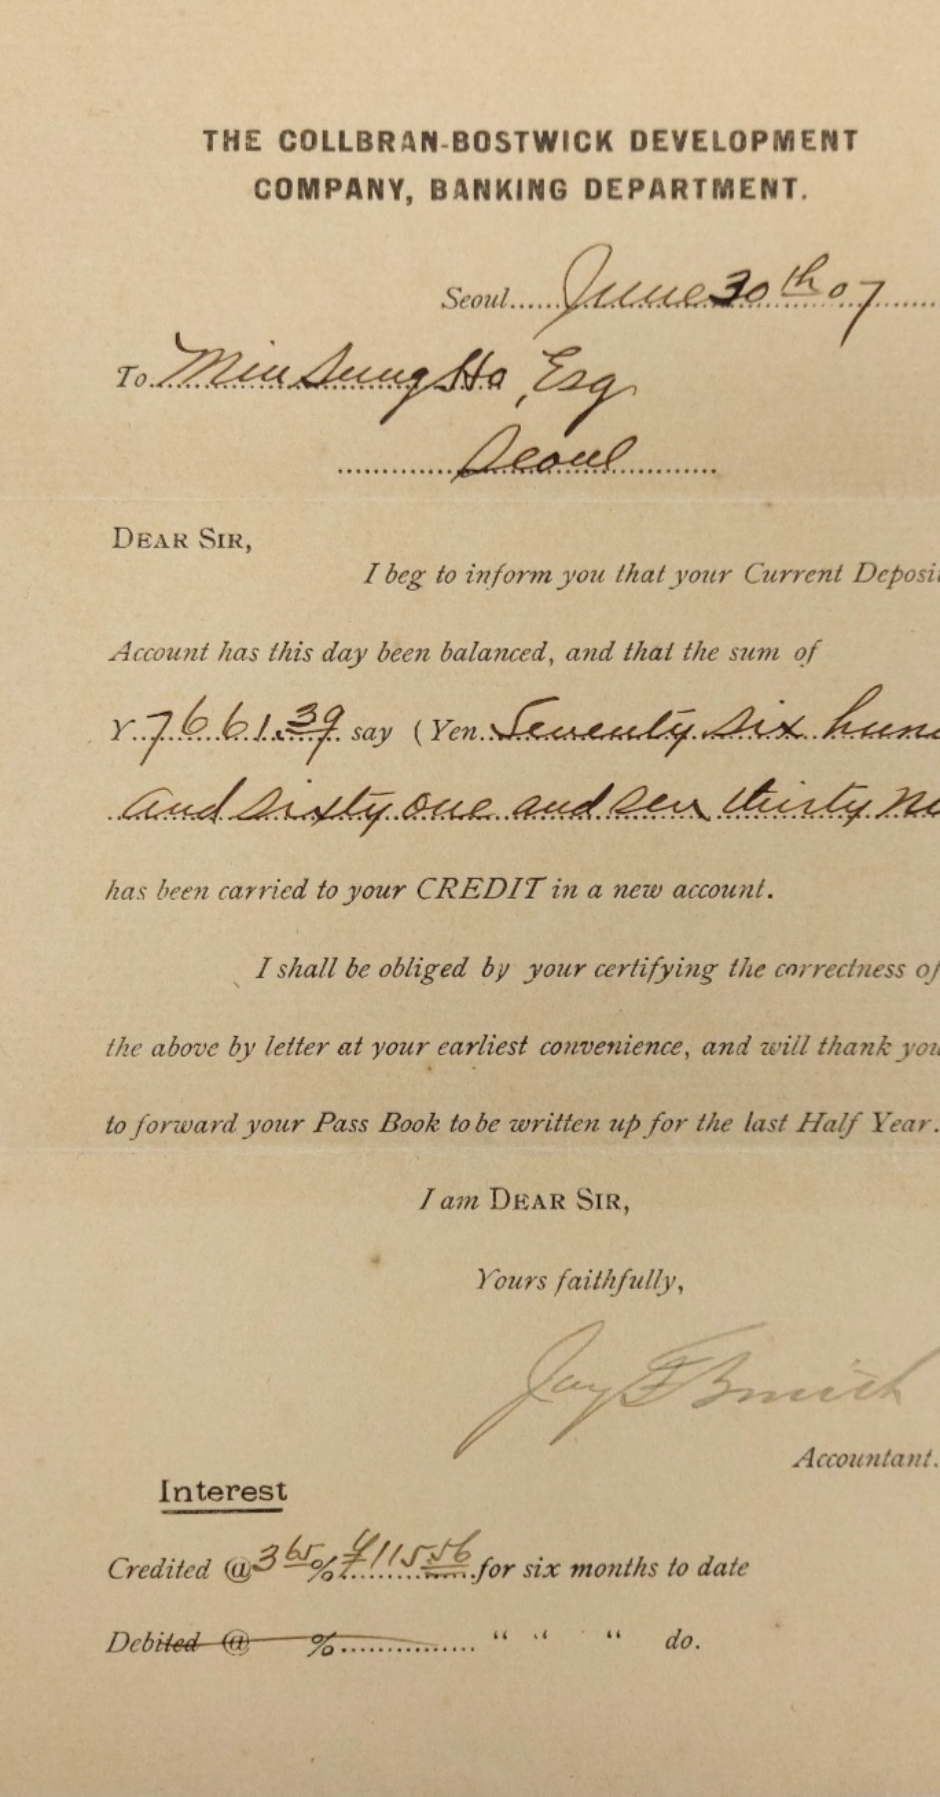 THE COLLBRAN-BOSTWICK DEVELOPMENT
COMPANY, BANKING DEPARTMENT.
Seoul......June 30th 07
To Min Sung Ho, Esq
Seoul
DEAR SIR,
I beg to inform you that your Current Deposi
Account has this day been balanced, and that the sum of
Y. 7661.39 say (Yen Seventy six hun
and sixty one and sen thirty
has been carried to your CREDIT in a new account.
I shall be obliged by your certifying the correctness of
the above by letter at your earliest convenience, and will thank you
to forward your Pass Book to be written up for the last Half Year.
I am DEAR SIR,
Yours faithfully,
Jay Smith
Accountant.
Interest
Credited @ 3 65 % ¥115 56 for six months to date
Debited @ % “ “ “ do.